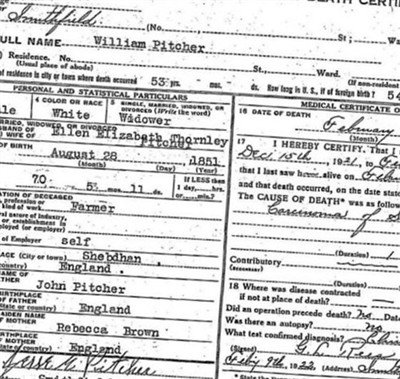 DEATH CERTI
Smithfield.
(No.
St;
Wa
FULL NAME William Pitcher
) Residence. No.
St.,
Ward.
(Usual place of abode)
(If non-resident
of residence in city or town where death occurred 53 yrs. mos. ds. How long in U. S., if of foreign birth? 54
PERSONAL AND STATISTICAL PARTICULARS
4 COLOR OR RACE
White
5 SINGLE, MARRIED, WIDOWED, OR DIVORCED (Write the word)
Widower
MARRIED, WIDOWED, OR DIVORCED
HUSBAND OF
WIFE OF
Ellen Elizabeth Thornley
Pitcher
OF BIRTH
August 28 1851
(Month) (Day) (Year)
70 5 mos. 11 ds.
If LESS than
1 day, hrs.
or min.?
OCCUPATION OF DECEASED
profession or
kind of work
Farmer
nature of industry,
or establishment
employed (or employer)
of Employer self
PLACE (City or town) Shebdhan
England
NAME OF
FATHER
John Pitcher
BIRTHPLACE
OF FATHER
England
MAIDEN NAME
OF MOTHER
Rebecca Brown
BIRTHPLACE
OF MOTHER
England
Pitcher
MEDICAL CERTIFICATE O
16 DATE OF DEATH
February
(Month)
17
I HEREBY CERTIFY, that I
Dec 15th, 1921, to
that I last saw h alive on
and that death occurred, on the date state
The CAUSE OF DEATH* was as follow
Carcinoma of
(Duration) 1
Contributory
(Secondary)
(Duration)
18 Where was disease contracted
if not at place of death?
Did an operation precede death? No Dat
Was there an autopsy? No
What test confirmed diagnosis?
(Signed)
Feby 9th, 1922 (Address)
* State the